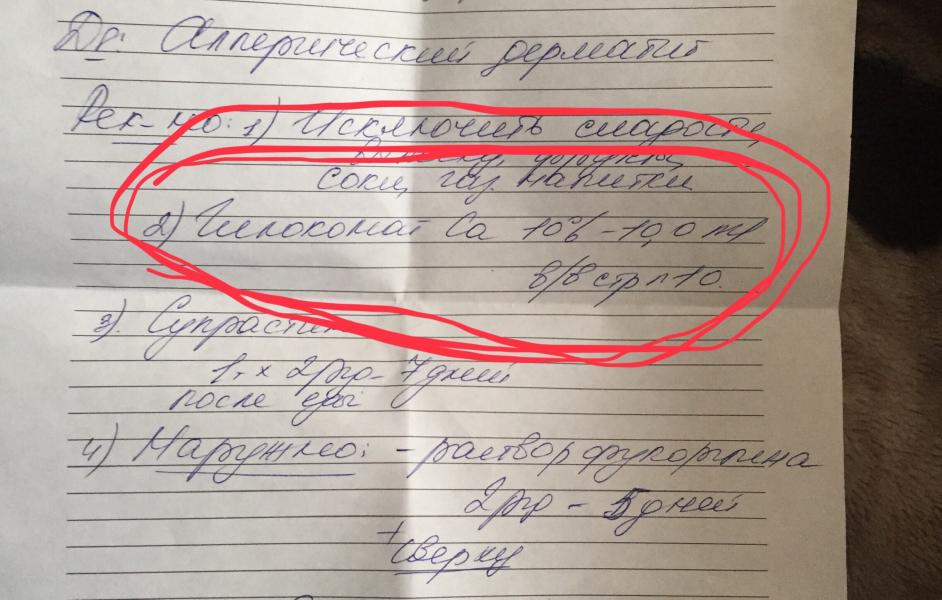 Ds: Аллергический дерматит
Рек-но: 1) Исключить сладости,
соки, газ. напитки
2) Глюконат Ca 10% - 10,0 ml
в/в стр n 10.
3). Супрастин
1т х 2 р/д - 7 дней
после еды
4) Наружно: - раствор фукорцина
2 р/д - 5 дней
+ сверху